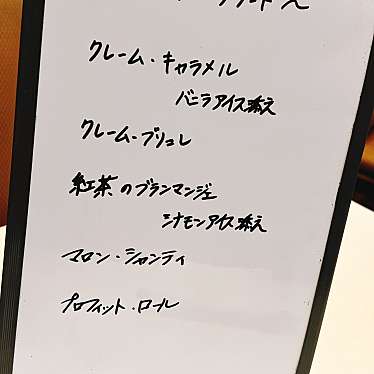 クレーム・キャラメル
バニラアイス添え
クレーム・ブリュレ
紅茶のブランマンジェ
シナモンアイス添え
マロン・シャンティ
プロフィット・ロール